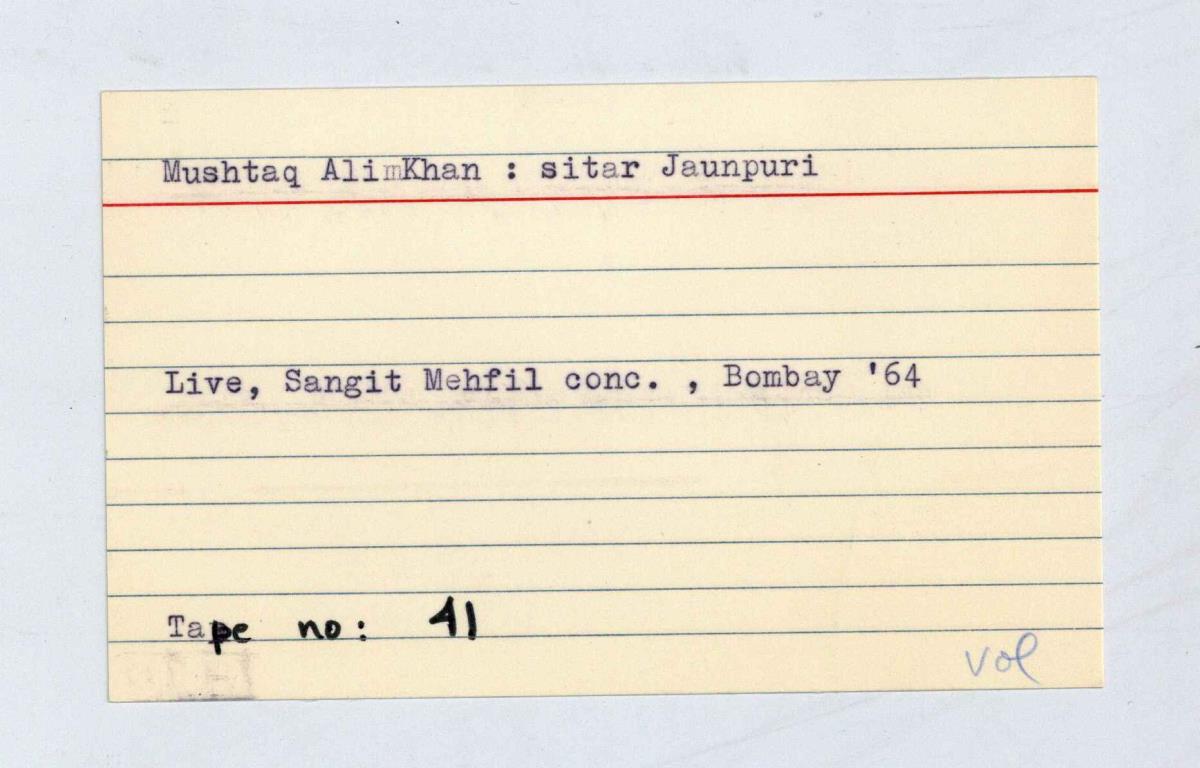 Mushtaq AlimKhan : sitar Jaunpuri
Live, Sangit Mehfil conc. , Bombay '64
Tape no: 41
vol